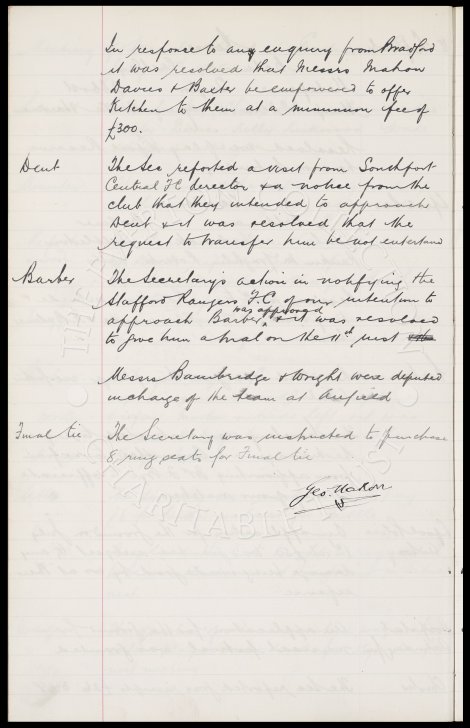 In response to any enquiry from Bradford
it was resolved that Messrs Mahon
Davies & Baxter be empowered to offer
Kitchen to them at a minimum fee of
£300.
Dent The Sec reported a visit from Southport
Central FC director & a notice from the
club that they intended to approach
Dent & it was resolved that the
request to transfer him be not entertained
Barber The Secretarys action in notifying the
Stafford Rangers FC of our intention to
approach Barber was approved & it was resolved
to give him a trial on the 11th inst
Messrs Bainbridge & Wright were deputed
in charge of the team at Anfield
Final tie The Secretary was instructed to purchase
8 ring seats for Final tie
Geo. Mahon
CHARITABLE